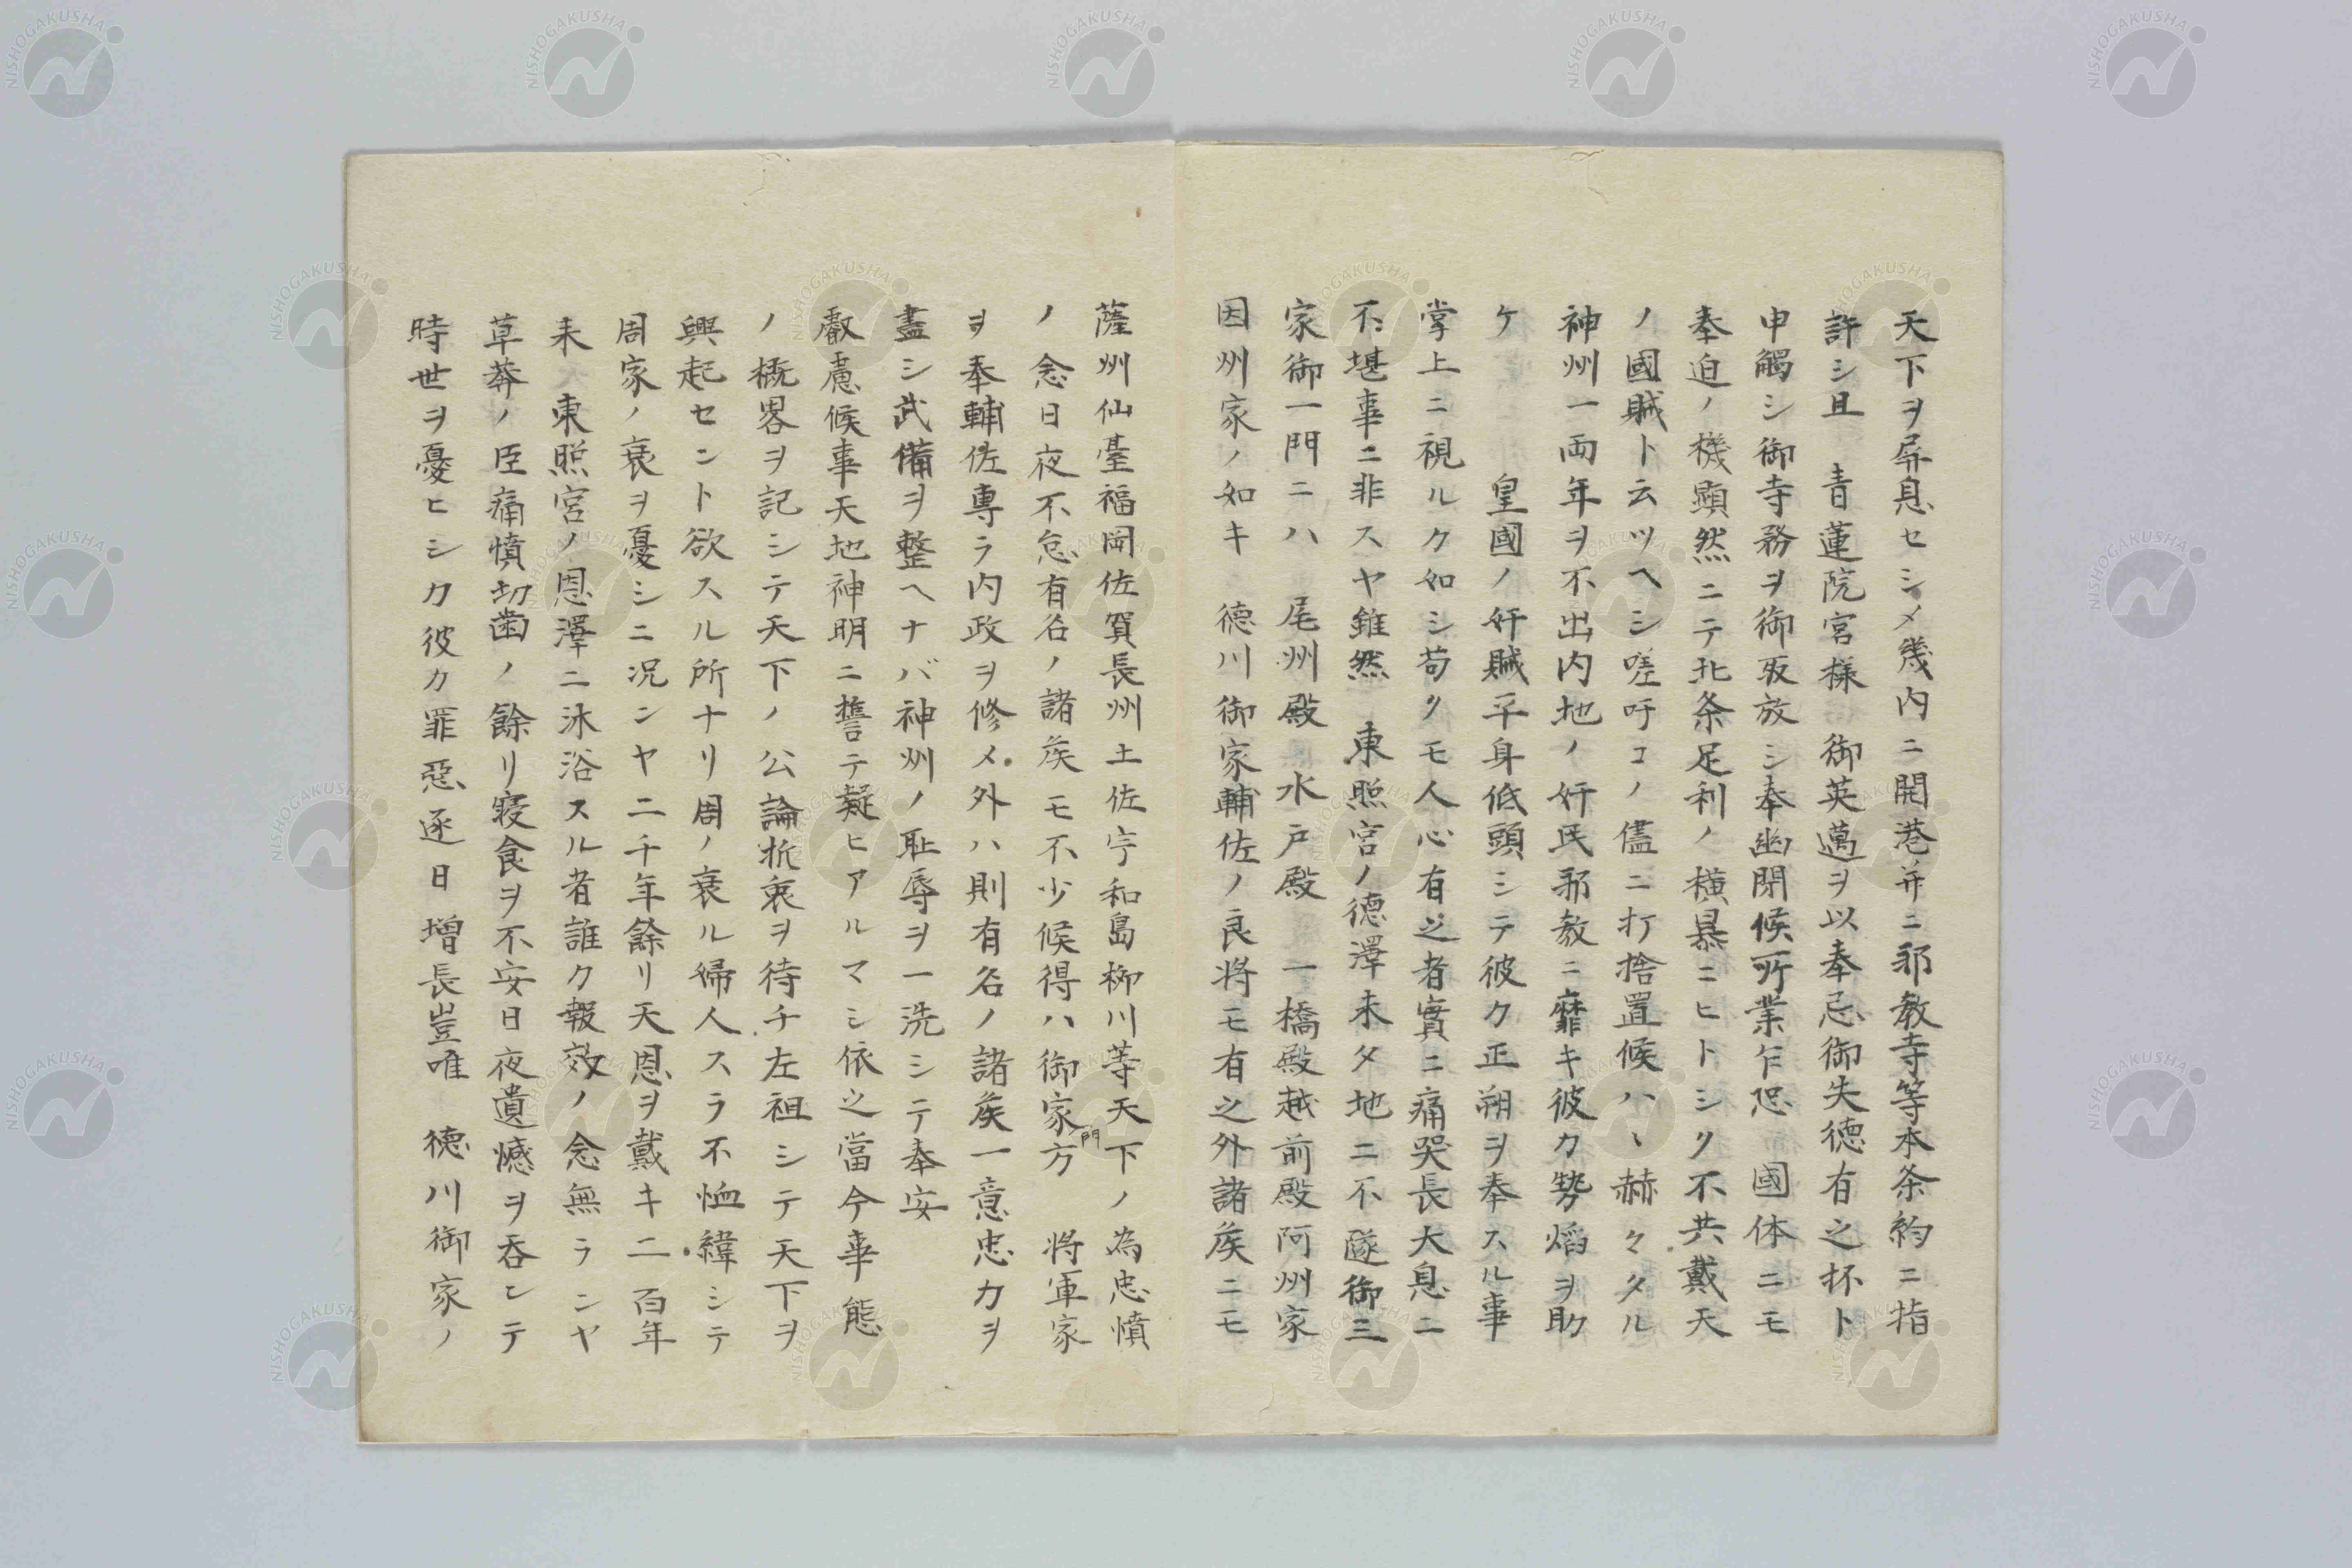 天下ヲ屏息セシメ幾内ニ開港并ニ邪教寺等本条約ニ指
許シ且　青蓮院宮様　御英邁ヲ以奉忌御失徳有之抔ト
申觸シ御寺務ヲ御取放シ奉幽閉候所業乍恐　國体ニモ
奉迫ノ機顕然ニテ北条足利ノ横暴ニヒトシク不共戴天
ノ國賊ト云ツヘシ嗟吁コノ儘ニ打捨置候ハヽ赫々タル
神州一両年ヲ不出内地ノ奸民邪教ニ靡キ彼カ勢焰ヲ助
ケ　　皇國ノ奸賊平身低頭シテ彼ク正朔ヲ奉スル事
掌上ニ視ルク如シ苟クモ人心有之者實ニ痛哭長大息ニ
不堪事ニ非スヤ雖然　東照宮ノ徳澤未タ地ニ不墜御三
家御一門ニハ　尾州殿　水戸殿　一橋殿越前殿阿州家
因州家ノ如キ　徳川御家輔佐ノ良将モ有之外諸矦ニモ
薩州仙臺福岡佐賀長州土佐宇和島柳川等天下ノ為忠憤
ノ念日夜不怠有名ノ諸矦モ不少候得ハ御家門方　将軍家
ヲ奉輔佐専ラ内政ヲ修メ外ハ則有名ノ諸矦一意忠力ヲ
盡シ武備ヲ整ヘナバ神州ノ恥辱ヲ一洗シテ奉安
叡慮候事天地神明ニ誓テ疑ヒアルマシ依之當今事態
ノ概畧ヲ記シテ天下ノ公論折衷ヲ待チ左袒シテ天下ヲ
興起セント欲スル所ナリ周ノ衰ル婦人スラ不恤緯シテ
周家ノ衰ヲ憂シニ况ンヤ二千年餘リ天恩ヲ戴キ二百年
来　東照宮ノ恩澤ニ沐浴スル者誰ク報效ノ念無ランヤ
草莽ノ臣痛憤切歯ノ餘リ寝食ヲ不安日夜遺憾ヲ呑ンテ
時世ヲ憂ヒシカ彼カ罪惡逐日増長豈唯　徳川御家ノ
NISHOGAKUSHA